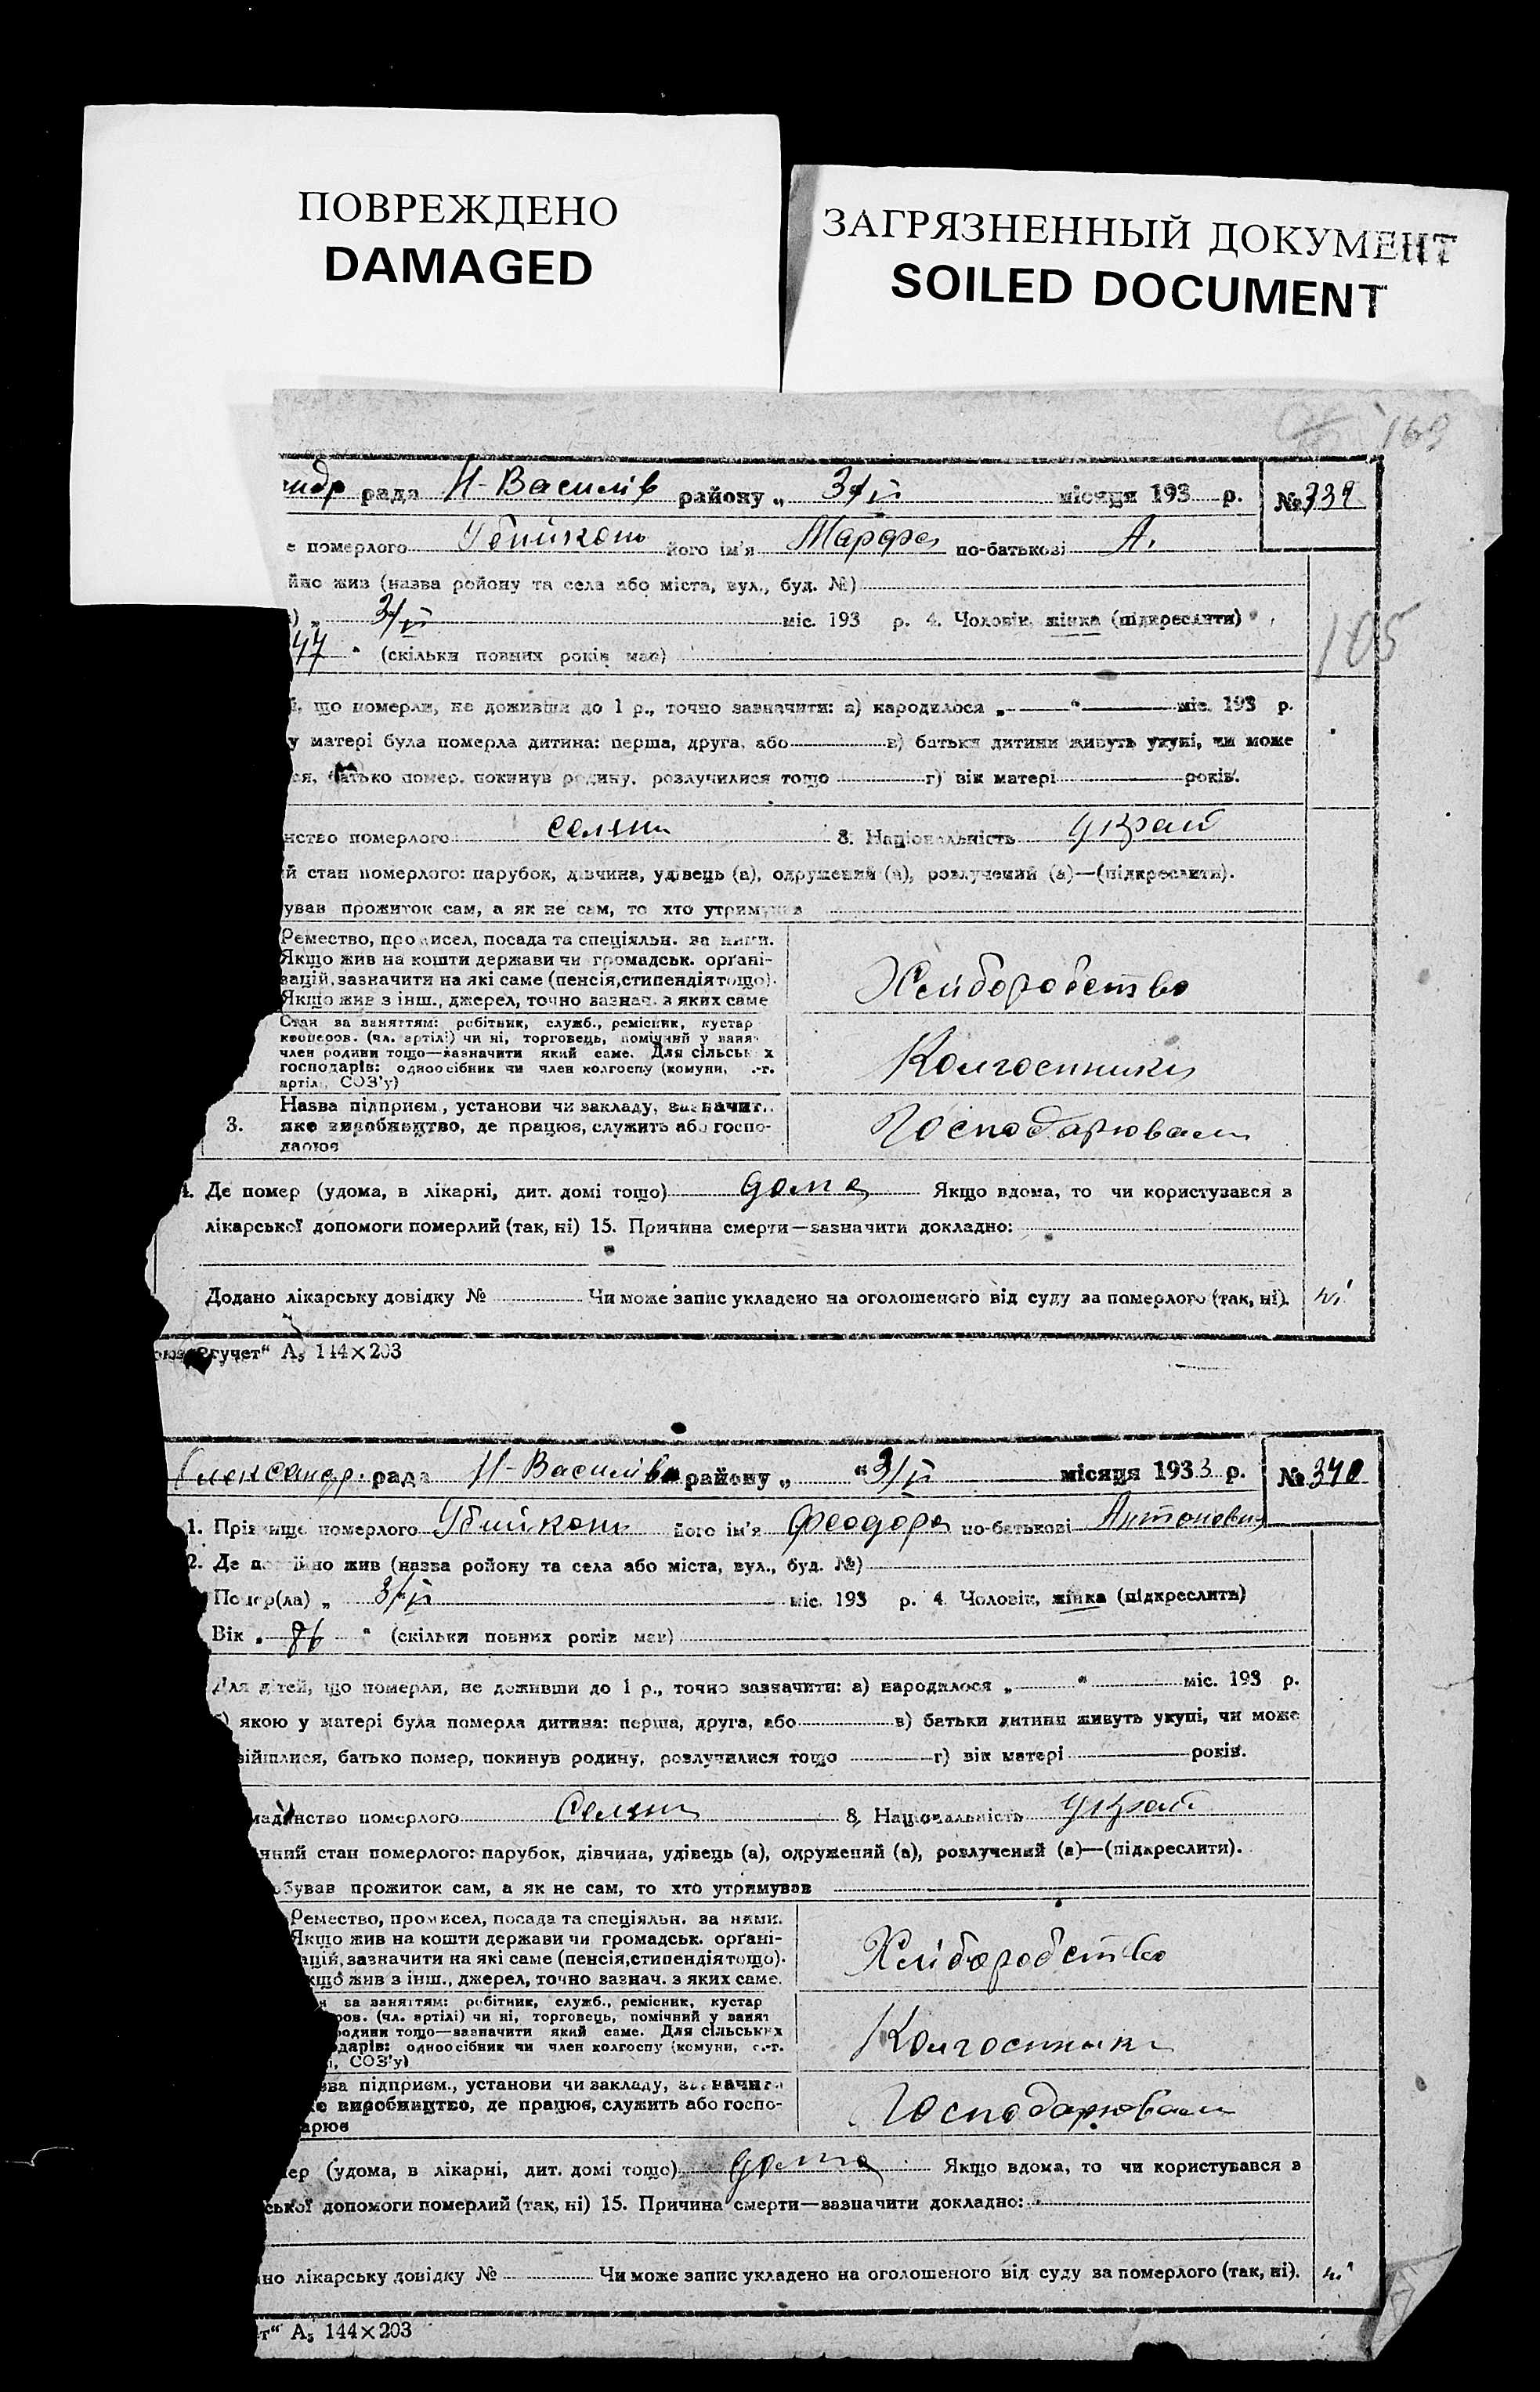 ПОВРЕЖДЕНО
DAMAGED
ЗАГРЯЗНЕННЫЙ ДОКУМЕНТ
SOILED DOCUMENT
169
рада Н-Василів району „ 3/VI місяця 193 р. № 339
е померлого його ім'я Марфа по-батькові А.
йно жив (назва району та села або міста, вул., буд. №)
) „ 3/VI міс. 193 р. 4. Чоловік, жінка (підкреслити)
105
47 " (скільки повних років мав)
й, що померли, не доживши до 1 р., точно зазначити: а) народилося „ " міс. 193 р.
у матері була померла дитина: перша, друга, або в) батьки дитини живуть укупі, чи може
ся, батько помер, покинув родину, розлучилися тощо г) вік матері років.
нство померлого селян 8. Національність Украй
й стан померлого: парубок, дівчина, удівець (а), одружений (а), розлучений (а)—(підкреслити).
ував прожиток сам, а як не сам, то хто утримував
Ремество, промисел, посада та спеціяльн. за ними.
Якщо жив на кошти держави чи громадськ. орґані-
зацій, зазначити на які саме (пенсія, стипендія тощо).
Якщо жив з інш., джерел, точно зазнач. з яких саме
Хліборобство
Стан за заняттям: робітник, служб., ремісник, кустар
кооперов. (чл. артілі) чи ні, торговець, помічний у занят
член родини тощо—зазначити який саме. Для сільських
господарів: одноосібник чи член колгоспу (комуни, с.-г.
артілі, СОЗ'у)
Колгоспники
3. Назва підприєм., установи чи закладу, зазначити
яке виробництво, де працює, служить або госпо-
дарює
Господарювали
4. Де помер (удома, в лікарні, дит. домі тощо) дома Якщо вдома, то чи користувався з
лікарської допомоги померлий (так, ні) 15. Причина смерти—зазначити докладно:
Додано лікарську довідку № Чи може запис укладено на оголошеного від суду за померлого (так, ні). ні
гучет“ А₅ 144×203
Олександр. рада Н-Василівк району „ “ 3/VI місяця 1933 р. № 340
1. Прізвище померлого його ім'я Феодора по-батькові Антоновна
2. Де постійно жив (назва району та села або міста, вул., буд. №)
Помер(ла) „ 3/VI міс. 193 р. 4. Чоловік, жінка (підкреслити)
Вік „ 86 “ (скільки повних років мав)
Для дітей, що померли, не доживши до 1 р., точно зазначити: а) народилося „ “ міс. 193 р.
) якою у матері була померла дитина: перша, друга, або в) батьки дитини живуть укупі, чи може
війшлися, батько помер, покинув родину, розлучилися тощо г) вік матері років.
мадянство померлого Селян 8. Національність Украй
яний стан померлого: парубок, дівчина, удівець (а), одружений (а), розлучений (а)—(підкреслити).
обував прожиток сам, а як не сам, то хто утримував
Ремество, промисел, посада та спеціяльн. за ними.
Якщо жив на кошти держави чи громадськ. орґані-
ацій, зазначити на які саме (пенсія, стипендія тощо).
кщо жив з інш., джерел, точно зазнач. з яких саме.
Хліборобство
н за заняттям: робітник, служб., ремісник, кустар
ров. (чл. артілі) чи ні, торговець, помічний у занят
родини тощо—зазначити який саме. Для сільських
одарів: одноосібник чи член колгоспу (комуни, с.-г.
і, СОЗ'у)
Колгоспники
зва підприєм., установи чи закладу, зазначити
е виробництво, де працює, служить або госпо-
арює
Господарювали
мер (удома, в лікарні, дит. домі тощо) дома Якщо вдома, то чи користувався з
ської допомоги померлий (так, ні) 15. Причина смерти—зазначити докладно:
но лікарську довідку № Чи може запис укладено на оголошеного від суду за померлого (так, ні). ні
т“ А₅ 144×203